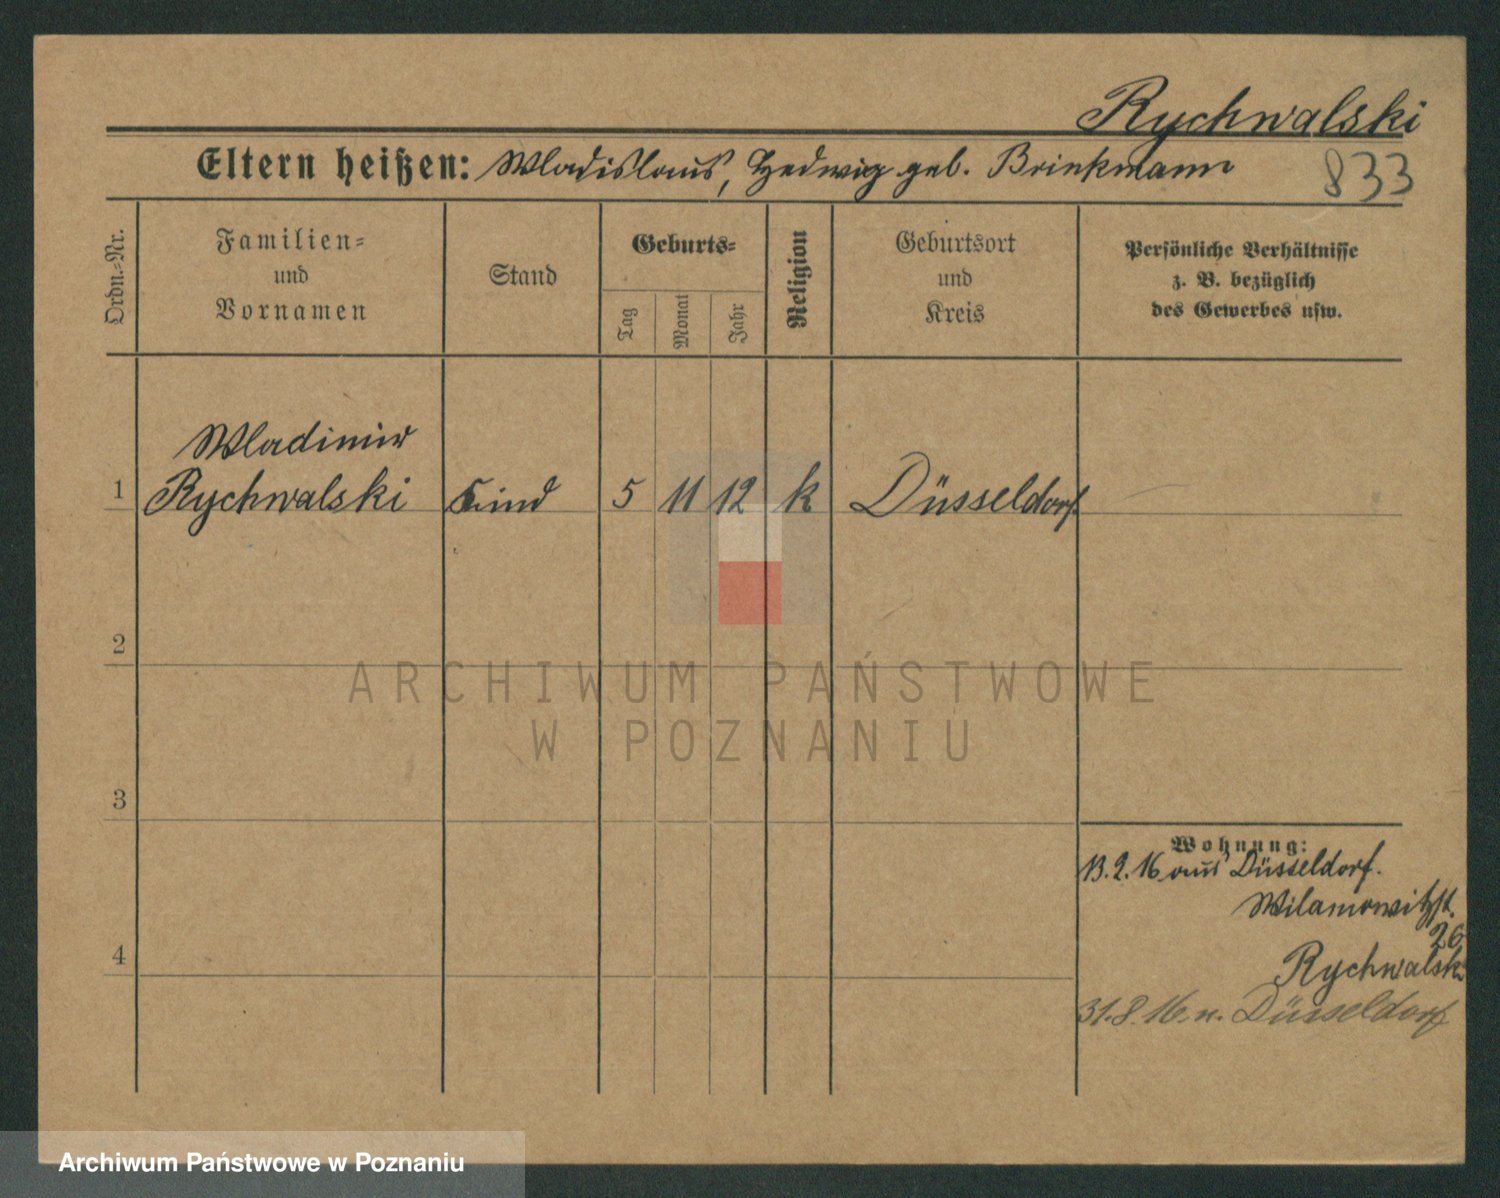 Rychwalski
Eltern heißen: Wladislaus, Hedwig geb. Brinkmann
833
Ordn.=Nr.
Familien=
und
Vornamen
Stand
Geburts=
Tag
Monat
Jahr
Religion
Geburtsort
und
Kreis
Persönliche Verhältnisse
z. B. bezüglich
des Gewerbes usw.
Wladimir
1 Rychwalski Kind 5 11 12 k Düsseldorf
2
ARCHIWUM PAŃSTWOWE
W POZNANIU
3
Wohnung:
13.2.16 aus Düsseldorf.
Wilamowitzst.
26
Rychwalski
4
31.8.16 n. Düsseldorf
Archiwum Państwowe w Poznaniu